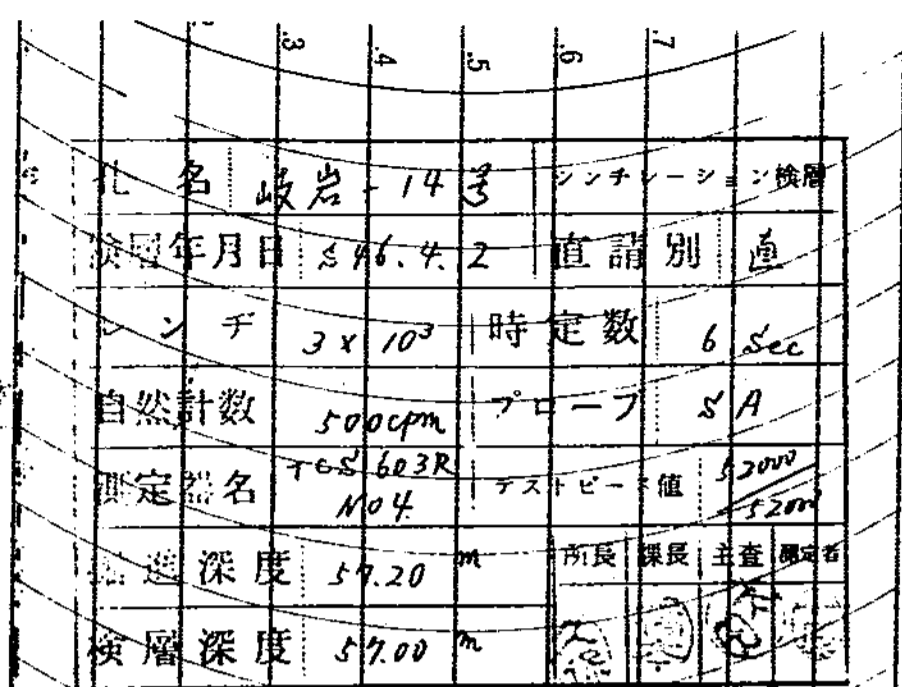 .3 .4 .5 .6 .7
孔名 岐岩-14号 シンチレーション検層
検層年月日 S46.4.2 直請別 直
レンヂ 3×10³ 時定数 6 Sec
自然計数 500cpm プローブ SA
測定器名 TCS 603R NO4. テストピース値 52000/52000
掘進深度 57.20 m 所長 課長 主査 測定者
検層深度 57.00 m